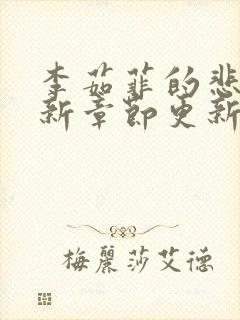 李茹菲的悲
新章節更新
梅麗莎艾德